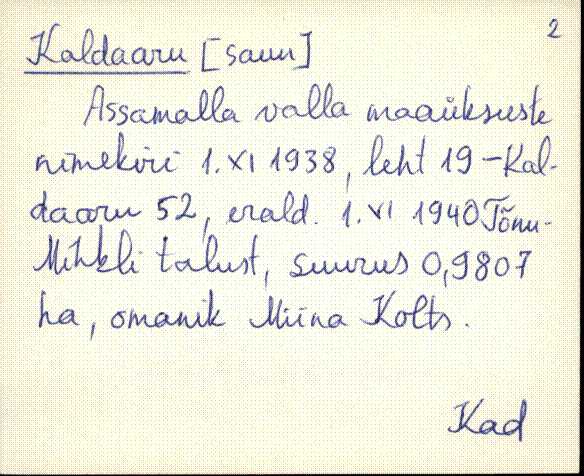 2
Kaldaaru [saun]
Assamalla valla maaüksuste
nimekiri 1. XI 1938, leht 19 - Kal-
daaru 52, erald. 1. VI 1940 Tõnu-
Mihkli talust, suurus 0,9807
ha, omanik Miina Kolts.
Kad